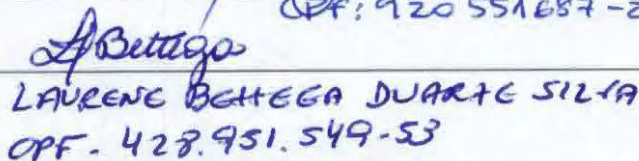 CPF: 920 551687-2
Bettega
LAURENE BETTEGA DUARTE SILVA
CPF. 428.951.549-53